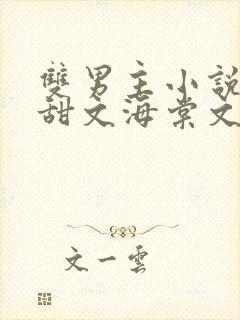 雙男主小說
甜文海棠文
文一雲